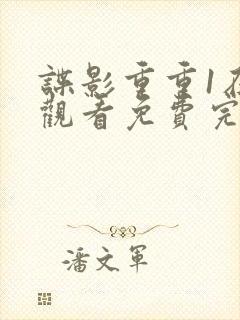 諜影重重1在
觀看免費完
潘文軍